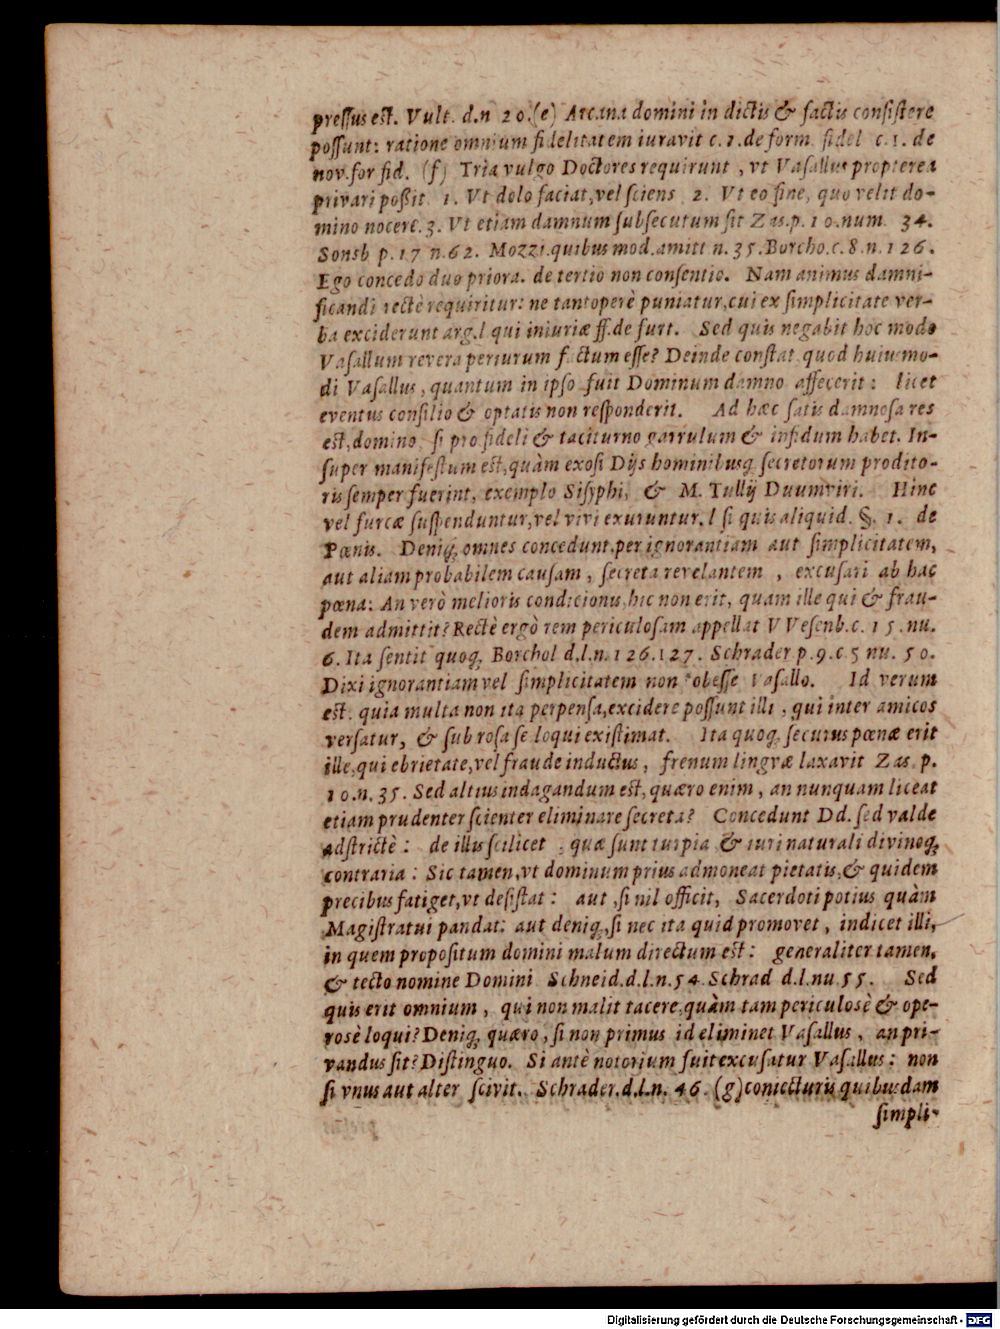 pressus est. Vult. d.n 20.(e) Arcana domini in dictis & factis consistere
possunt: ratione omnium fidelitatem iuravit c.1.de form. fidel c.1. de
nov.for fid. (f) Tria vulgo Doctores requirunt, vt Vasallus propterea
privari poßit. 1. Vt dolo faciat, vel sciens 2. Vt eo fine, quo velit do-
mino nocere. 3. Vt etiam damnum subsecutum sit Zas.p.10.num 34.
Sonsb p.17 n.62. Mozzi.quibus mod.amitt n.35.Borcho.c.8.n.126.
Ego concedo duo priora. de tertio non consentio. Nam animus damni-
ficandi rectè requiritur: ne tantoperè puniatur, cui ex simplicitate ver-
ba exciderunt arg.l qui iniuriæ ff.de furt. Sed quis negabit hoc modo
Vasallum revera periurum factum esse? Deinde constat quod huiusmo-
di Vasallus, quantum in ipso fuit Dominum damno affecerit: licet
eventus consilio & optatis non responderit. Ad hæc satis damnosa res
est, domino, si pro fideli & taciturno garrulum & infidum habet. In-
super manifestum est, quàm exosi Dijs hominibusq; secretorum prodito-
ris semper fuerint, exemplo Sisyphi, & M. Tullij Duumviri. Hinc
vel furcæ suspenduntur, vel vivi exuruntur. l si quis aliquid. §. 1. de
Pœnis. Deniq; omnes concedunt, per ignorantiam aut simplicitatem,
aut aliam probabilem causam, secreta revelantem, excusari ab hac
pœna: An verò melioris condicionis, hic non erit, quam ille qui & frau-
dem admittit? Rectè ergò rem periculosam appellat VVesenb.c. 15.nu.
6. Ita sentit quoq; Borchol d.l.n.126.127. Schrader p.9.c 5 nu. 50.
Dixi ignorantiam vel simplicitatem non obesse Vasallo. Id verum
est. quia multa non ita perpensa, excidere possunt illi, qui inter amicos
versatur, & sub rosa se loqui existimat. Ita quoq; securus pœnæ erit
ille, qui ebrietate, vel fraude inductus, frenum lingvæ laxarit Zas. p.
10.n.35. Sed altius indagandum est, quæro enim, an nunquam liceat
etiam prudenter scienter eliminare secreta? Concedunt Dd. sed valde
adstrictè: de illis scilicet, quæ sunt turpia & iuri naturali divinoq;
contraria: Sic tamen, vt dominum prius admoneat pietatis, & quidem
precibus fatiget, vt desistat: aut, si nil officit, Sacerdoti potius quàm
Magistratui pandat: aut deniq;, si nec ita quid promovet, indicet illi,
in quem propositum domini malum directum est: generaliter tamen,
& tecto nomine Domini Schneid.d.l.n.54.Schrad d.l.nu.55. Sed
quis erit omnium, qui non malit tacere, quàm tam periculosè & ope-
rosè loqui? Deniq; quæro, si non primus id eliminet Vasallus, an pri-
vandus sit? Distinguo. Si antè notorium fuit excusatur Vasallus: non
si vnus aut alter scivit. Schrader.d.l.n. 46. (g) coniecturis quibusdam
simpli-
Digitalisierung gefördert durch die Deutsche Forschungsgemeinschaft - DFG